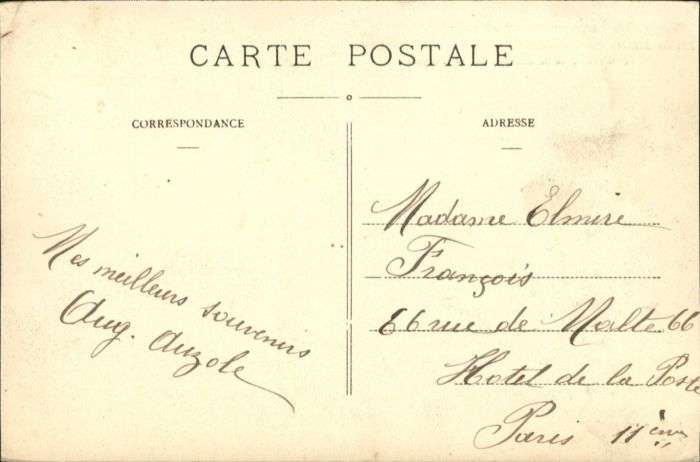 CARTE POSTALE
CORRESPONDANCE
Mes meilleurs souvenirs
Aug. Auzole
ADRESSE
Madame Elmire
François
66 rue de Malte 66
Hotel de la Poste
Paris 11ème